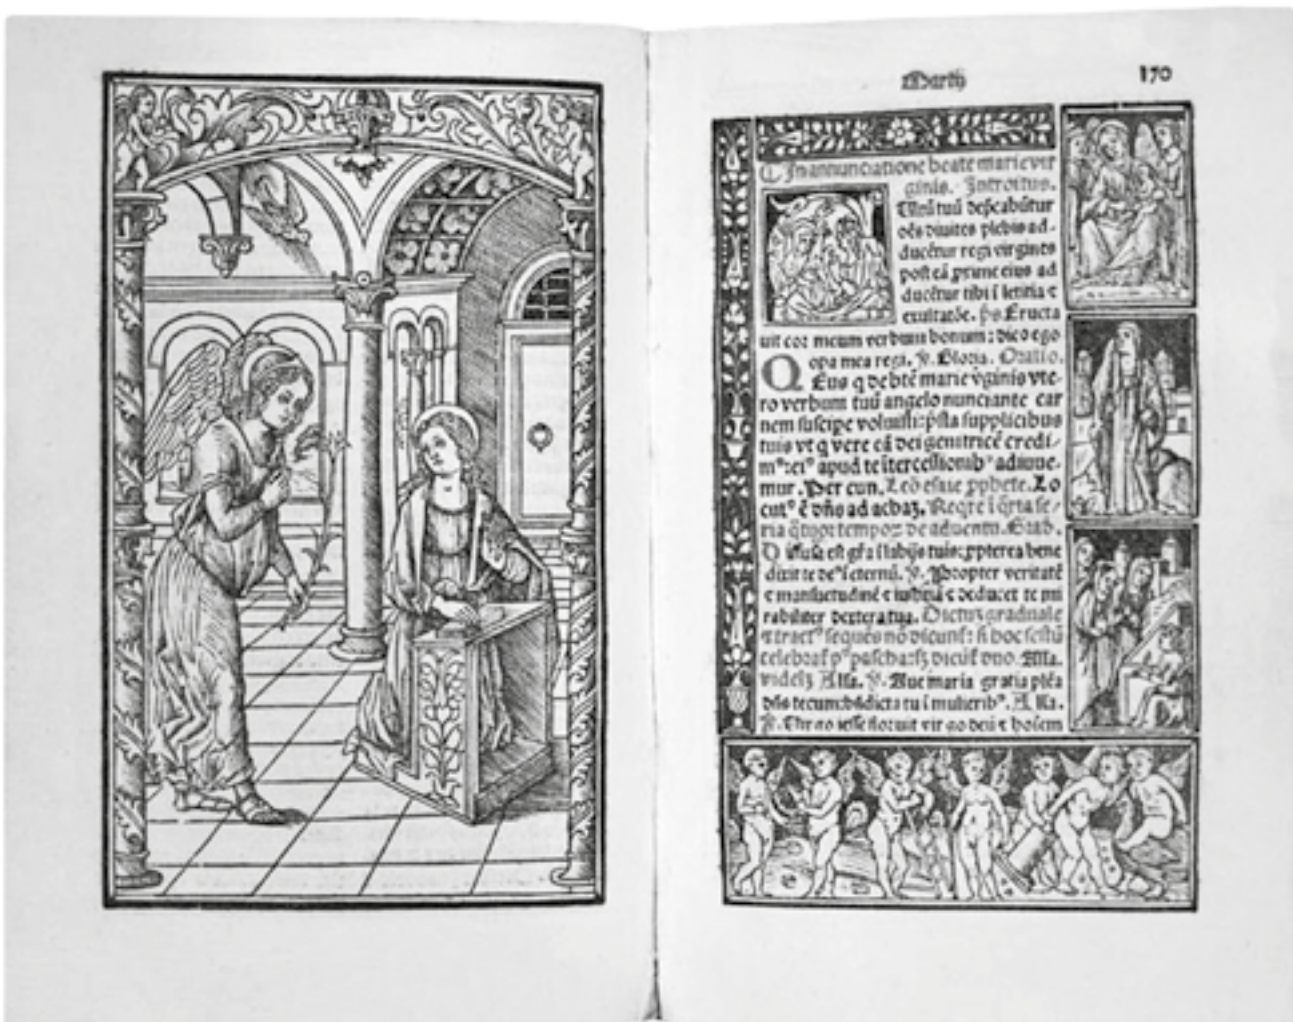 Martij
170
In annunciatione beate marie vir
ginis. Introitus.
Ultū tuū dep̄cabūtur
oēs divites plebis ad-
ducētur regi virgines
post eā proxime eius ad
ducētur tibi ī letitia ⁊
exultatōe. ps. Eructa
uit cor meum verbum bonum: dico ego
opa mea regi. ℣. Gloria. Oratio.
Eus q de btē marie v̄ginis vte-
ro verbum tuū angelo nunciante car
nem suscipe voluisti: p̄sta supplicibus
tuis vt q vere eā dei genitricē credi-
mꝰ: eiꝰ apud te ītercessionibꝰ adiuue-
mur. Per eun. Leō esaie ꝓphete. Lo
cutꝰ ē dn̄s ad achaz. Reqre ī q̄rta fe-
ria q̄tuor tempoꝝ de aduentu. Grad.
Diffusa est gr̄a ī labijs tuis: ꝓpterea bene
dixit te deꝰ ī eternū. ℣. Propter veritatē
⁊ mansuetudinē ⁊ iustitiā ⁊ deducet te mi
rabiliter dextera tua. Dictuꝫ graduale
⁊ tractꝰ sequēs nō dicunt: si hoc festū
celebraſ pꝰ pascha: sꝫ dicit̄ vno. Alla.
videlꝫ Alla. ℣. Aue maria gratia plēa
dn̄s tecum: bn̄dicta tu ī mulieribꝰ. Alla.
℣. Virgo iesse floruit virgo deū ⁊ hoīem